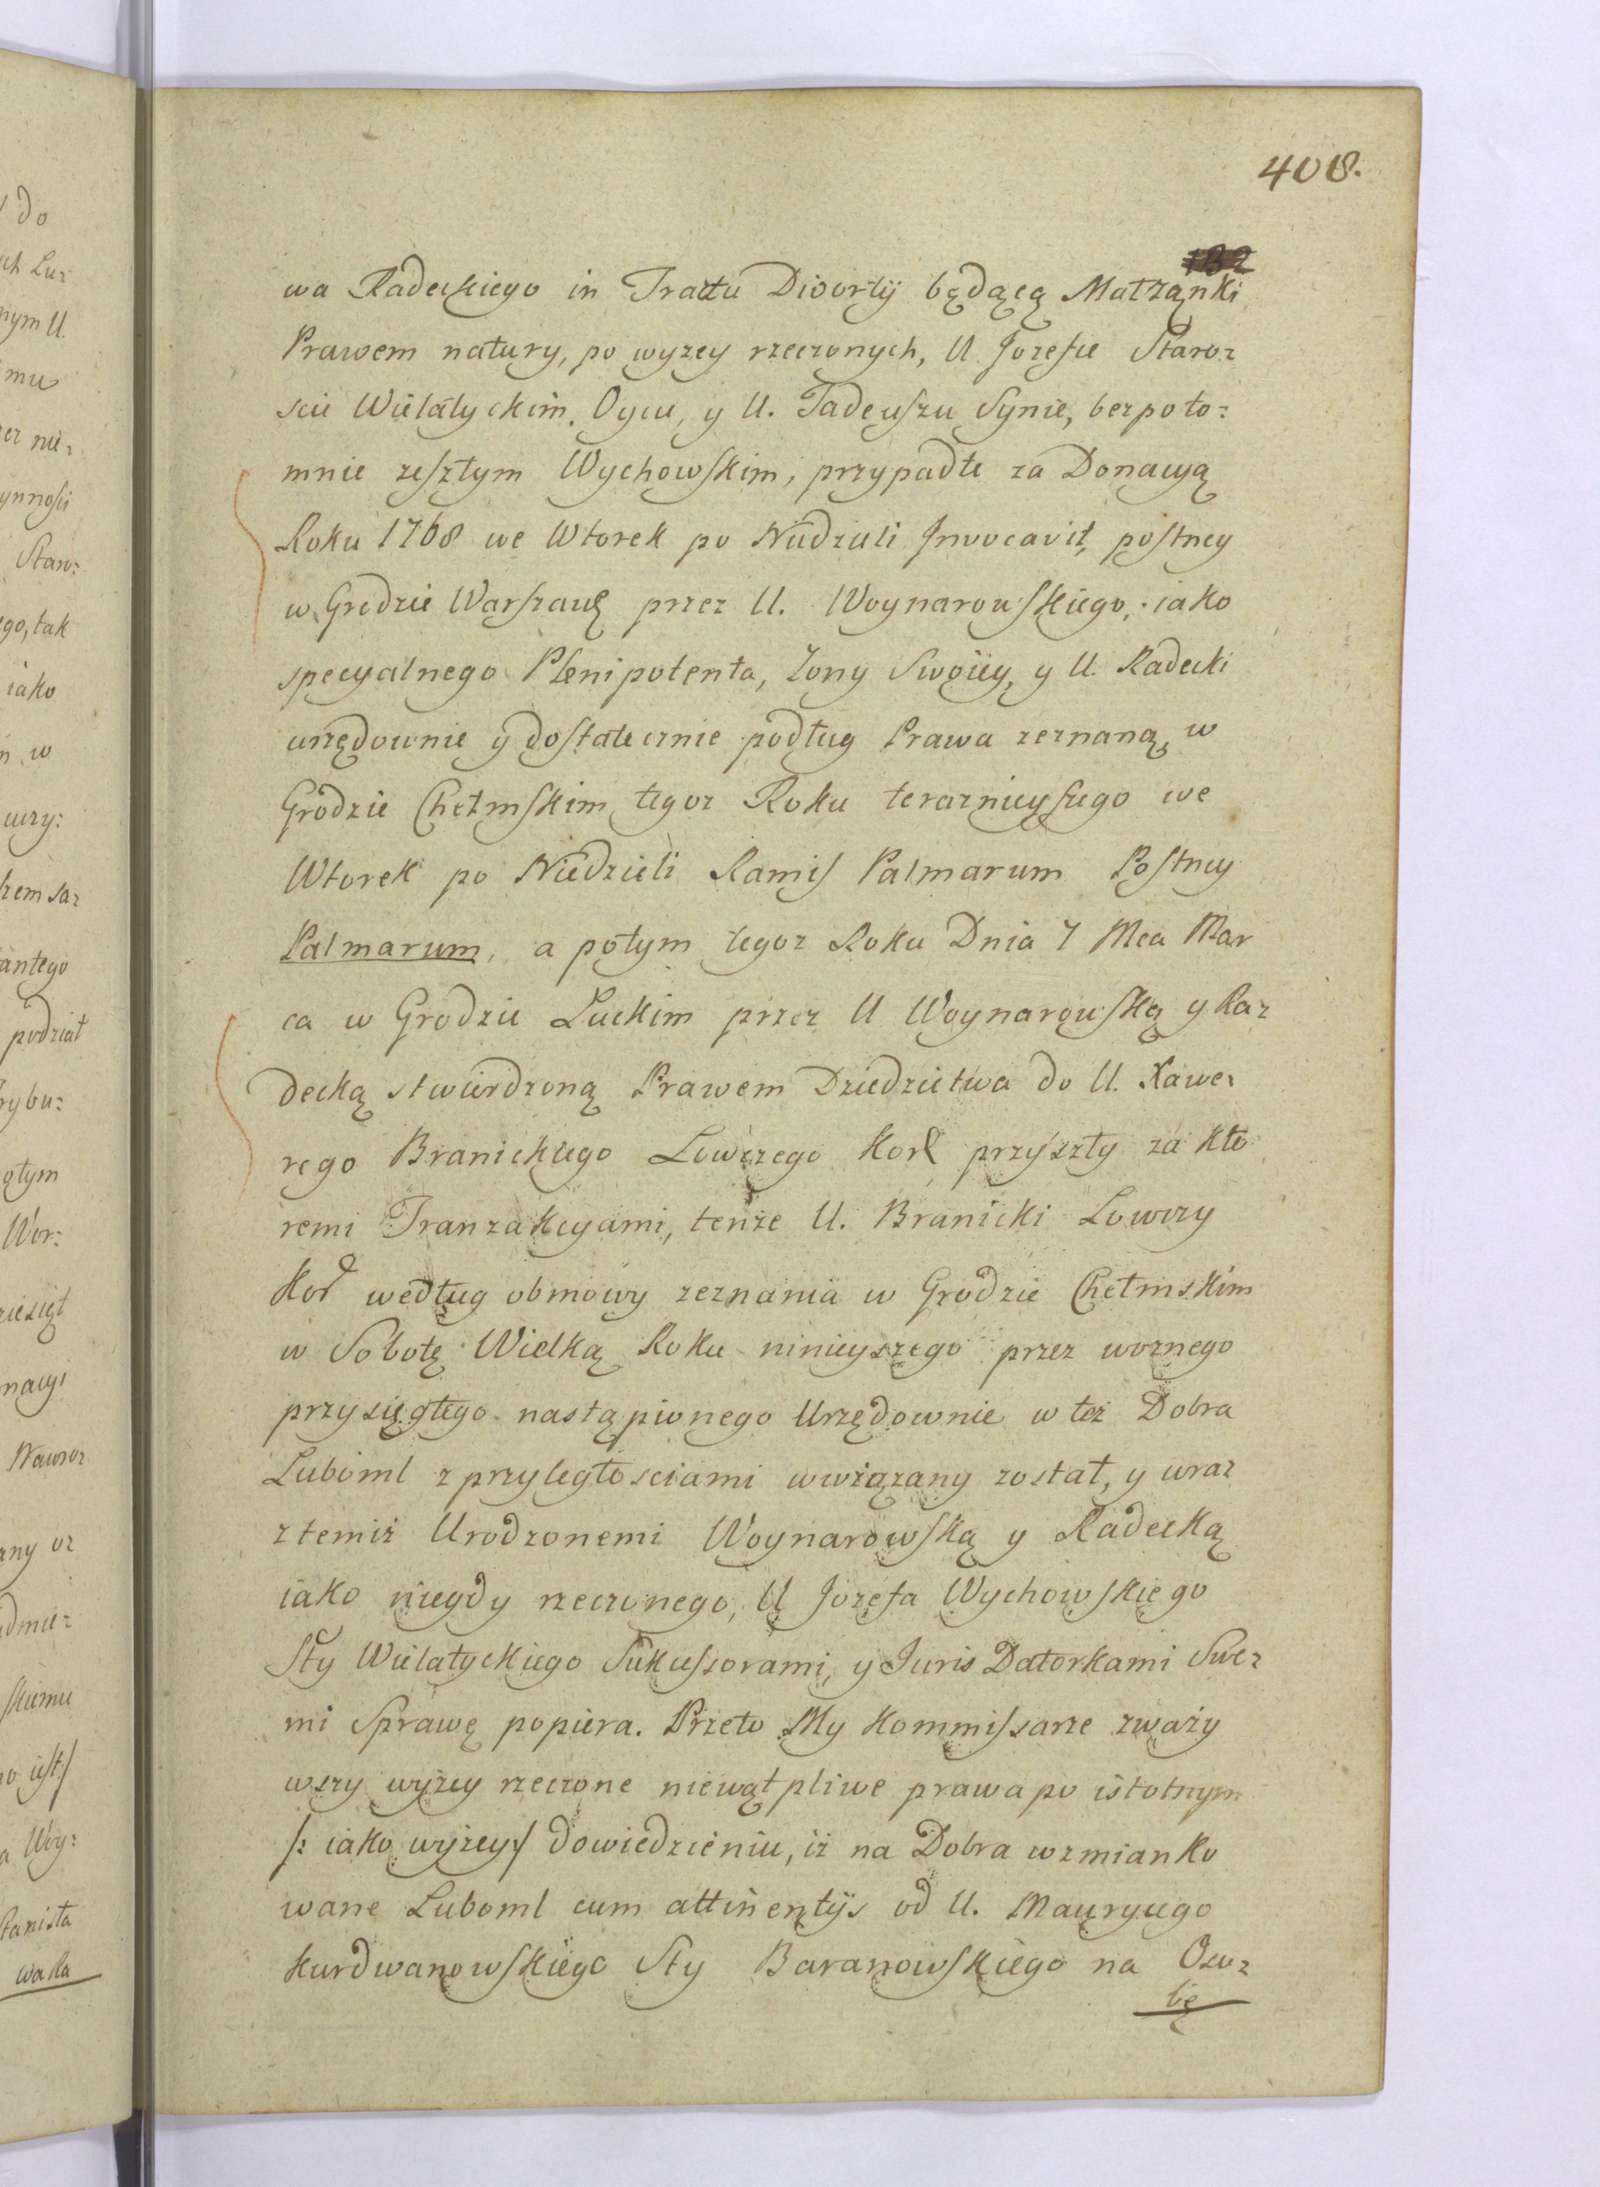 408.
wa Radeckiego in Tractu Divortij będącą Małżąnki
Prawem natury, po wyzey rzeczonych, U. Jozefie Staro:
scie Wielatyckim, Oycu, y U. Tadeuszu Synie, bezpoto:
mnie zeszłym Wychowskim, przypadłe za Donacyą
Roku 1768 we Wtorek po Niedzieli Invocavit, postney
w Grodzie Warszawꝭ przez U. Woynarowskiego, iako
specyalnego Plenipotenta, Zony Swoiey, y U. Radecki
urzędownie y dostatecznie podług Prawa zeznaną, w
Grodzie Chełmskim tegoz Roku teraznieyszego we
Wtorek po Niedzieli Ramis Palmarum Postney
Palmarum, a potym tegoz Roku Dnia 7 Mca Mar
ca w Grodzie Luckim przez U Woynarowską y Ra:
decką stwierdzoną Prawem Dziedzictwa do U. Xawe:
rego Branickiego Łowczego Kor przyszły za kto
remi Tranzakcyami, tenże U. Branicki Łowczy
Kor według obmowy zeznania w Grodzie Chełmskim
w Sobotę Wielką Roku ninieyszego przez woznego
przysięgłego nastąpionego Urzędownie w też Dobra
Luboml z przyległosciami wwiązany został, y wraz
z temiż Urodzonemi Woynarowską y Radecką
iako niegdy rzeczonego, U Jozefa Wychowskiego
Sty Wielatyckiego Sukcessorami, y Juris Datorkami Swe:
mi Sprawę popiera. Przeto My Kommissarze zważy
wszy wyżey rzeczone niewątpliwe prawa po istotnym
/: iako wyżey:/ dowiedzieniu, iż na Dobra wzmianko
wane Luboml cum attinentijs od U. Maurycego
Kurdwanowskiego Sty Baranowskiego na Oso:
bę
do
mu
iako
w
antego
podział